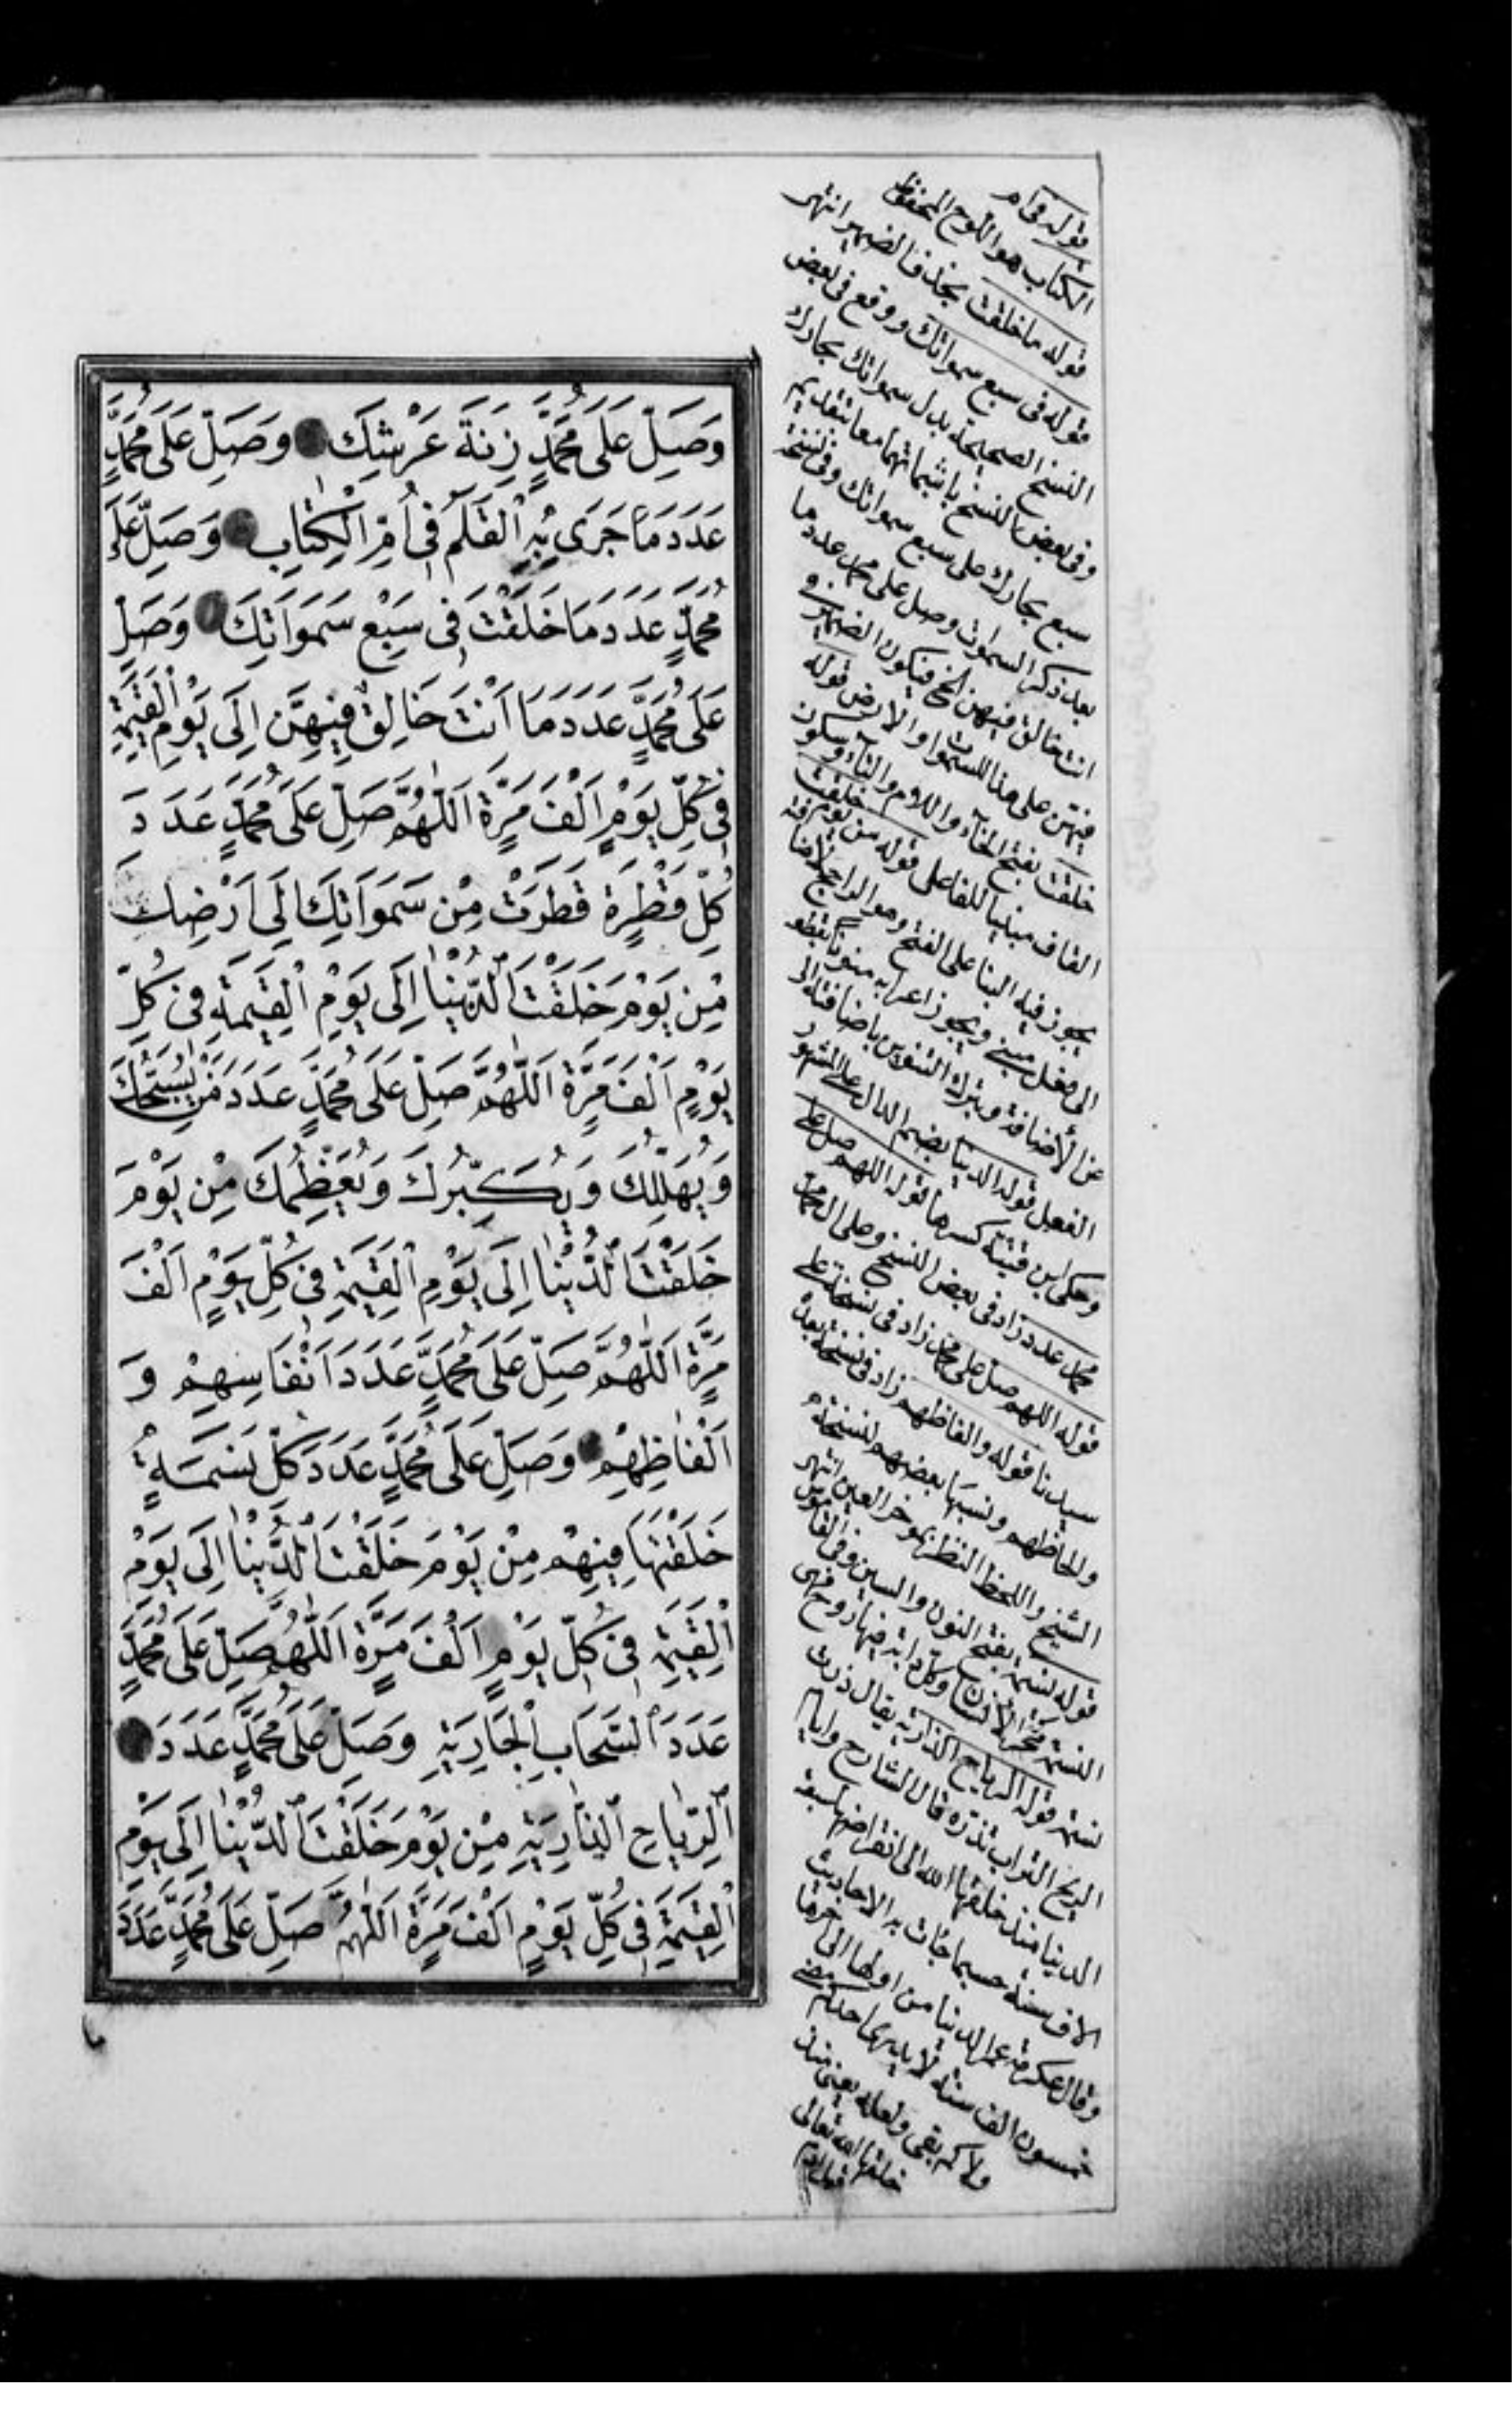 وَصَلِّ عَلَى مُحَمَّدٍ زِنَةَ عَرْشِكَ وَصَلِّ عَلَى مُحَمَّدٍ
عَدَدَ مَا جَرَى بِهِ الْقَلَمُ فِى اُمِّ الْكِتَابِ وَصَلِّ عَلَى
مُحَمَّدٍ عَدَدَ مَا خَلَقْتَ فِى سَبْعِ سَمَوَاتِكَ وَصَلِّ
عَلَى مُحَمَّدٍ عَدَدَ مَا اَنْتَ خَالِقٌ فِيهِنَّ اِلَى يَوْمِ الْقِيَمَةِ
فِى كُلِّ يَوْمٍ اَلْفَ مَرَّةٍ اَللّٰهُمَّ صَلِّ عَلَى مُحَمَّدٍ عَدَدَ
كُلِّ قَطْرَةٍ قَطَرَتْ مِنْ سَمَوَاتِكَ اِلَى اَرْضِكَ
مِنْ يَوْمَ خَلَقْتَ الدُّنْيَا اِلَى يَوْمِ الْقِيَمَةِ فِى كُلِّ
يَوْمٍ اَلْفَ مَرَّةٍ اَللّٰهُمَّ صَلِّ عَلَى مُحَمَّدٍ عَدَدَ مَنْ يُسَبِّحُكَ
وَيُهَلِّلُكَ وَيُكَبِّرُكَ وَيُعَظِّمُكَ مِنْ يَوْمَ
خَلَقْتَ الدُّنْيَا اِلَى يَوْمِ الْقِيَمَةِ فِى كُلِّ يَوْمٍ اَلْفَ
مَرَّةٍ اَللّٰهُمَّ صَلِّ عَلَى مُحَمَّدٍ عَدَدَ اَنْفَاسِهِمْ وَ
اَلْفَاظِهِمْ وَصَلِّ عَلَى مُحَمَّدٍ عَدَدَ كُلِّ نَسَمَةٍ
خَلَقْتَهَا فِيهِمْ مِنْ يَوْمَ خَلَقْتَ الدُّنْيَا اِلَى يَوْمِ
الْقِيَمَةِ فِى كُلِّ يَوْمٍ اَلْفَ مَرَّةٍ اَللّٰهُمَّ صَلِّ عَلَى مُحَمَّدٍ
عَدَدَ السَّحَابِ الْجَارِيَةِ وَصَلِّ عَلَى مُحَمَّدٍ عَدَدَ
الرِّيَاحِ الذَّارِيَةِ مِنْ يَوْمَ خَلَقْتَ الدُّنْيَا اِلَى يَوْمِ
الْقِيَمَةِ فِى كُلِّ يَوْمٍ اَلْفَ مَرَّةٍ اَللّٰهُمَّ صَلِّ عَلَى مُحَمَّدٍ عَدَدَ
قوله فى ام
الكتاب هو اللوح المحفوظ
قوله ما خلقت بحذف الضمير انتهى
قوله فى سبع سمواتك ووقع فى بعض
النسخ الصحيحة بدل سمواتك بحارك
وفى بعض النسخ باثباتهما معا بتقديم
سبع بحارك على سبع سمواتك وفى نسخة
بعد ذكر السموات وصل على محمد عدد ما
انت خالق فيهن الخ فيكون الضمير فى
فيهن على هذا للسموات والارض قوله
خلقت بفتح الخآء واللام والتآء وسكون
القاف مبنيا للفاعل قوله من يوم خلقت
يجوز فيه البنا على الفتح وهو الراجح لاضافته
الى فعل مبنى ويجوز اعرابه منونا بقطعه
عن الاضافة وبترك التنوين باضافته الى
الفعل قوله الدنيا بضم الدال على المشهور
وحكى ابن قتيبة كسرها قوله اللهم صل على
محمد عدد زاد فى بعض النسخ وعلى ال محمد
قوله اللهم صل على محمد زاد فى نسخة على
سيدنا قوله والفاظهم زاد فى نسخة بعده
ولحاظهم ونسبها بعضهم لنسخة
الشيخ واللحظ النظر بمؤخر العين انتهى
قوله نسمة بفتح النون والسين وفى القاموس
النسمة محركة الانسان وكل دابة فيها روح فهى
نسمة قوله الرياح الذارية يقال ذرت
الريح التراب تذره قال الشارح وايام
الدنيا منذ خلقها الله الى انقراضها سبعة
الاف سنة حسبما جآت به الاحاديث
وقال عكرمة عمر الدنيا من اولها الى اخرها
خمسون الف سنة لا يدرى احد كم مضى
ولا كم بقى ولعله يعنى منذ
خلقها الله تعالى